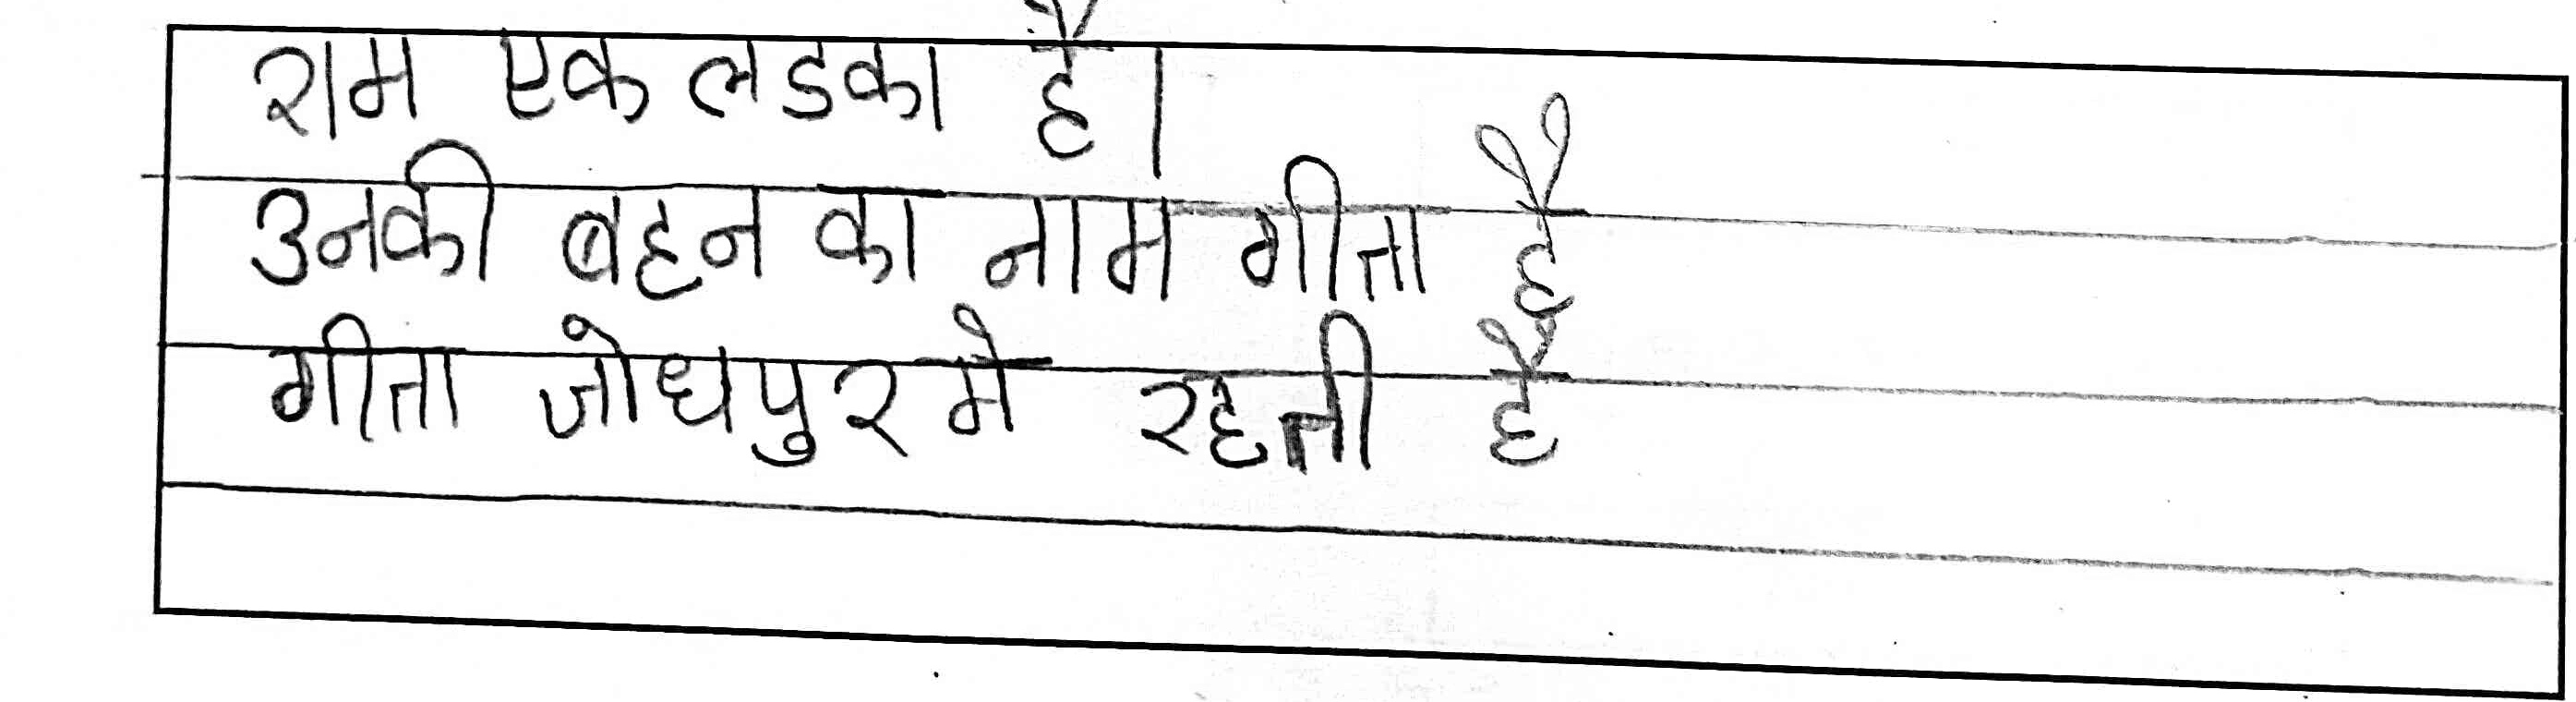 राम एक लडका है।
उनकी बहन का नाम गीता है
गीता जोधपुर मे रहती है